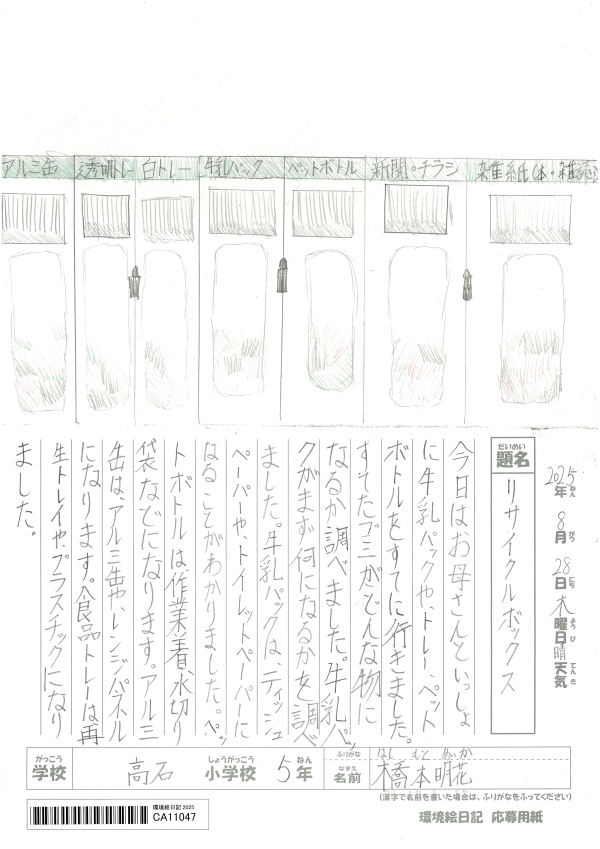 アルミ缶
透明トレー
白トレー
牛乳パック
ペットボトル
新聞・チラシ
雑紙(本・雑誌)
2025年ねん 8月がつ 28日にち 木曜日ようび 晴天気てんき
題名だいめい
リサイクルボックス
今日はお母さんといっしょ
に牛乳パックや、トレー、ペット
ボトルをすてに行きました。
すてたゴミがどんな物に
なるか調べました。牛乳パッ
クがまず何になるかを調べ
ました。牛乳パックは、ティッシュ
ペーパーや、トイレットペーパーに
なることがわかりました。ペッ
トボトルは作業着、水切り
袋などになります。アルミ
缶は、アルミ缶や、レンジパネル
になります。食品トレーは再
生トレイや、プラスチックになり
ました。
学校がっこう 高石 小学校しょうがっこう 5年ねん
ふりがな はし もと めいか
名前なまえ 橋本明花
(漢字で名前を書いた場合は、ふりがなをふってください)
環境絵日記 2025
CA11047
環境絵日記 応募用紙